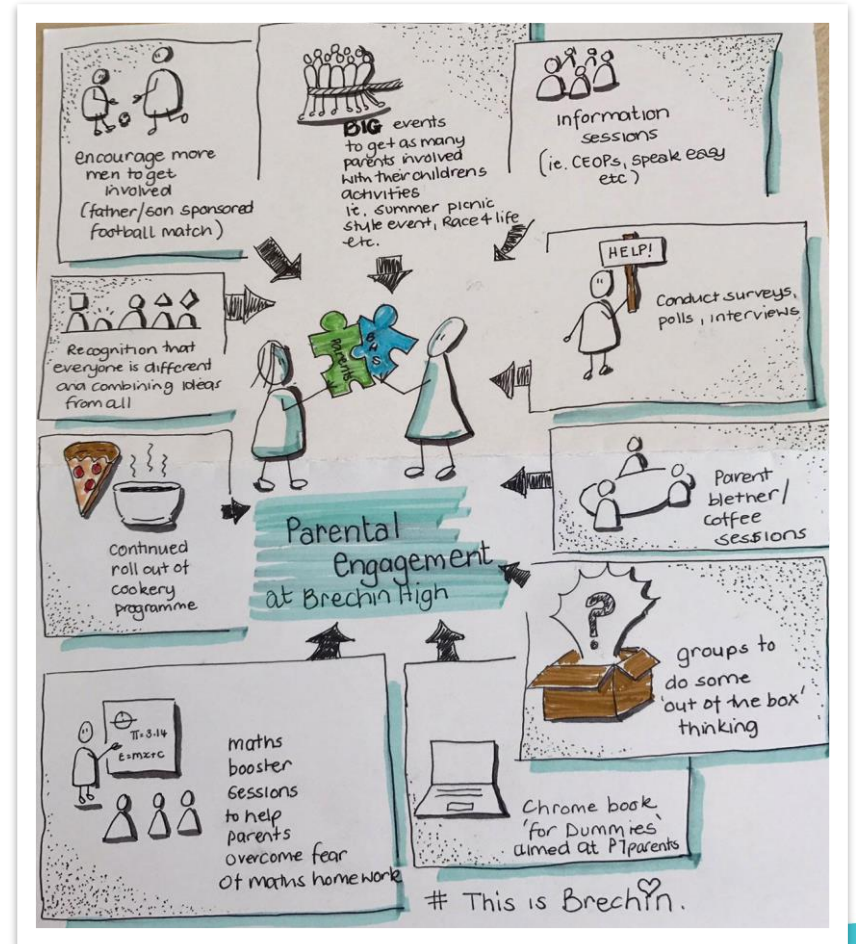 encourage more
men to get
involved
(father/son sponsored
football match)
BIG events
to get as many
parents involved
with their childrens
activities
ie. summer picnic
style event, Race 4 life
etc.
information
sessions
(ie. CEOPs, speak easy
etc)
HELP!
Conduct surveys,
polls, interviews
Recognition that
everyone is different
and combining ideas
from all
Parents
BHS
continued
roll out of
cookery
programme
Parental
Engagement
at Brechin High
Parent
blether/
coffee
sessions
?
groups to
do some
'out of the box'
thinking
π=3.14
t=mx+c
maths
booster
sessions
to help
parents
overcome fear
of maths homework
Chrome book
'for Dummies'
aimed at P7parents
# This is Brechin.